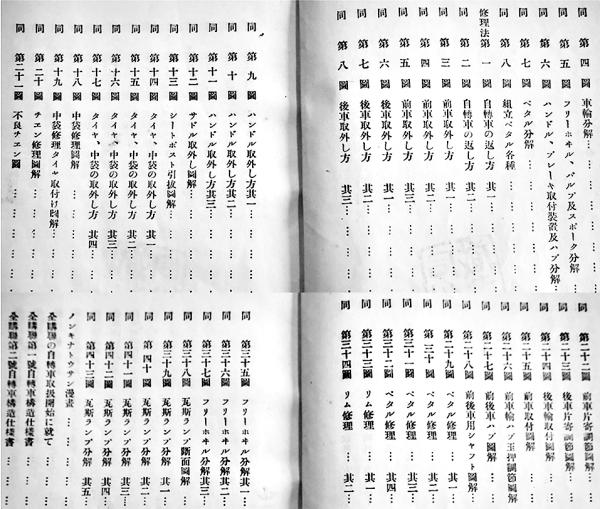 同 第四圖 車輪分解…
同 第五圖 フリーホヰル、バルブ及スポーク分解…
同 第六圖 ハンドル、ブレーキ取付裝置及ハブ分解…
同 第七圖 ペタル分解
同 第八圖 組立ペタル各種
修理法 第一圖 自轉車の返し方 其一…
同 第二圖 自轉車の返し方 其二…
同 第三圖 前車取外し方 其一…
同 第四圖 前車取外し方 其二…
同 第五圖 前車取外し方 其三…
同 第六圖 後車取外し方 其一
同 第七圖 後車取外し方 其二…
同 第八圖 後車取外し方 其三…
同 第九圖 ハンドル取外し方其一…
同 第十圖 ハンドル取外し方其二…
同 第十一圖 ハンドル取外し方其三…
同 第十二圖 サドル取外し圖解…
同 第十三圖 シートポスト引拔圖解…
同 第十四圖 タイヤ、中袋の取外し方 其一…
同 第十五圖 タイヤ、中袋の取外し方 其二…
同 第十六圖 タイヤ、中袋の取外し方 其三…
同 第十七圖 タイヤ、中袋の取外し方 其四…
同 第十八圖 中袋修理圖解
同 第十九圖 中袋修理タイヤ取付け圖解…
同 第二十圖 チエン修理圖解
同 第二十一圖 不良チエン圖
同 第二十二圖 前車片寄調節圖解
同 第二十三圖 後車片寄調節圖解
同 第二十四圖 後車輪取付圖解
同 第二十五圖 前車取付圖解
同 第二十六圖 前車輪ハブ玉押調節圖解
同 第二十七圖 前後車ハブ圖解
同 第二十八圖 前後車用シヤフト圖解
同 第二十九圖 ペタル修理 其一…
同 第三十圖 ペタル修理 其二…
同 第三十一圖 ペタル修理 其三…
同 第三十二圖 ペタル修理 其四…
同 第三十三圖 リム修理 其一…
同 第三十四圖 リム修理 其二…
同 第三十五圖 フリーホヰル分解其一…
同 第三十六圖 フリーホヰル分解其二…
同 第三十七圖 フリーホヰル分解其三…
同 第三十八圖 瓦斯ランプ斷面圖解
同 第三十九圖 瓦斯ランプ分解 其一…
同 第四十圖 瓦斯ランプ分解 其二…
同 第四十一圖 瓦斯ランプ分解 其三…
同 第四十二圖 瓦斯ランプ分解 其四…
同 第四十三圖 瓦斯ランプ分解 其五…
ノンキナトウサン漫畫
全購聯の自轉車取扱開始に就て
全購聯第一號自轉車構造仕樣書
全購聯第二號自轉車構造仕樣書